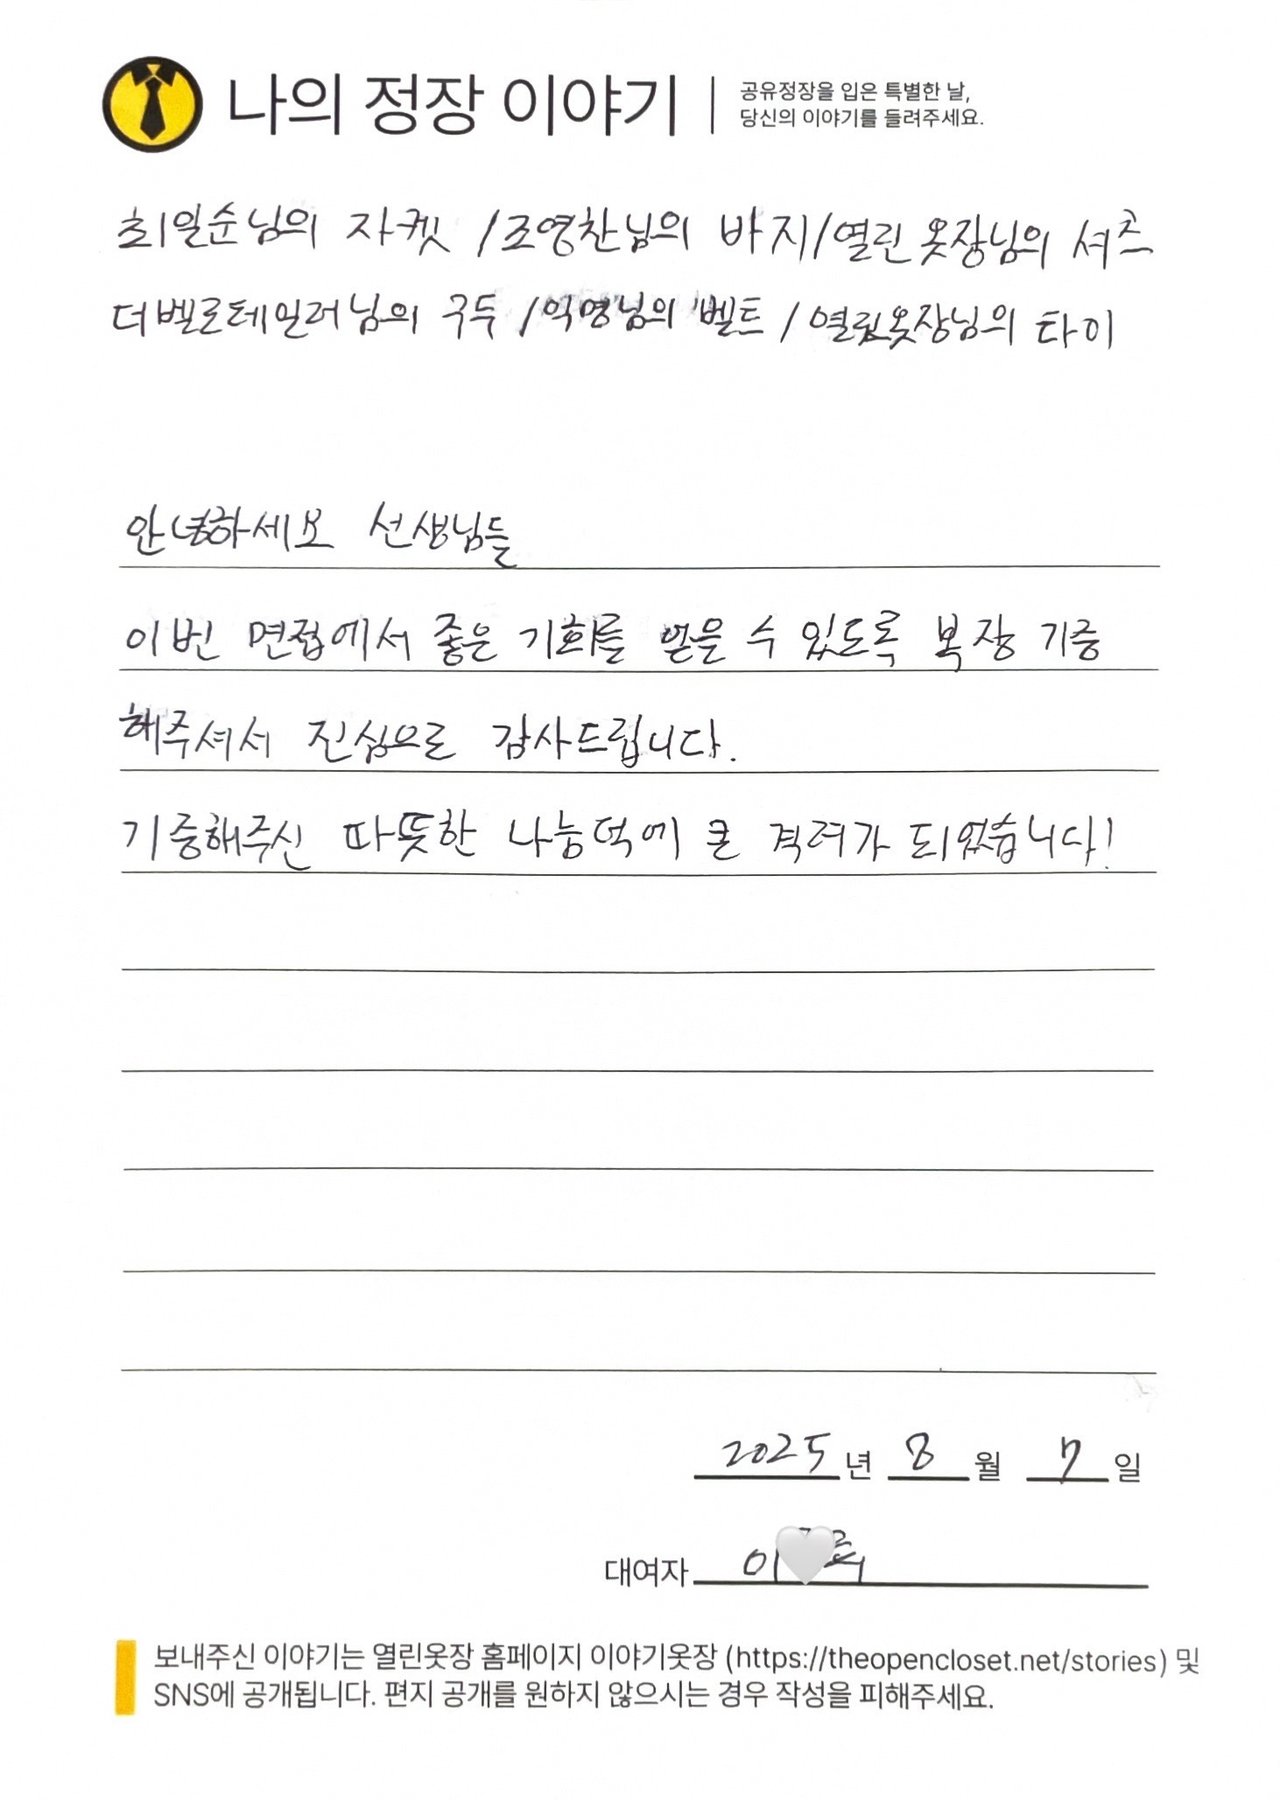 나의 정장 이야기
공유정장을 입은 특별한 날,
당신의 이야기를 들려주세요.
최일순님의 자켓 / 조영찬님의 바지 / 열린옷장님의 셔츠
더벨로테일러님의 구두 / 익명님의 벨트 / 열린옷장님의 타이
안녕하세요 선생님들
이번 면접에서 좋은 기회를 얻을 수 있도록 복장 기증
해주셔서 진심으로 감사드립니다.
기증해주신 따뜻한 나눔덕에 큰 격려가 되었습니다!
2025년 8월 7일
대여자 이
보내주신 이야기는 열린옷장 홈페이지 이야기옷장 (https://theopencloset.net/stories) 및
SNS에 공개됩니다. 편지 공개를 원하지 않으시는 경우 작성을 피해주세요.